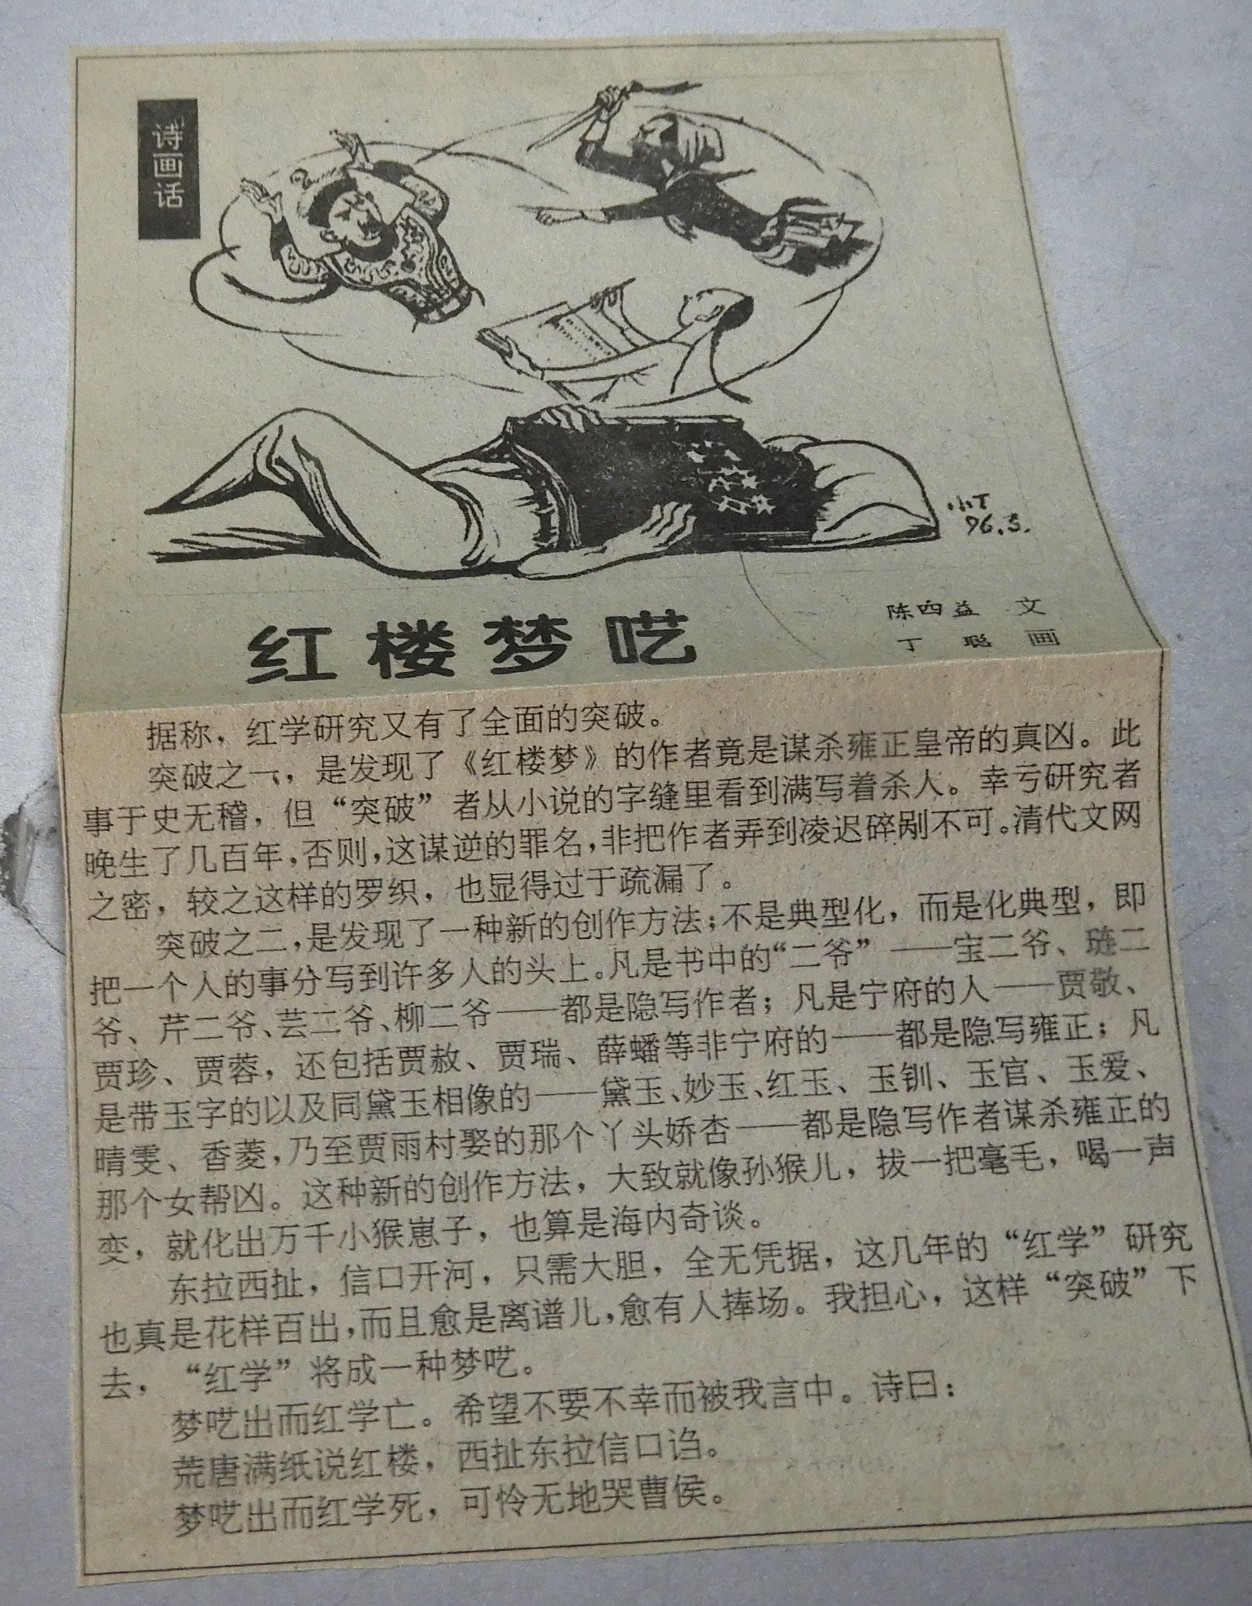 诗画话
小丁
96.3.
红楼梦呓
陈四益 文
丁聪 画
据称，红学研究又有了全面的突破。
突破之一，是发现了《红楼梦》的作者竟是谋杀雍正皇帝的真凶。此
事于史无稽，但“突破”者从小说的字缝里看到满写着杀人。幸亏研究者
晚生了几百年，否则，这谋逆的罪名，非把作者弄到凌迟碎剐不可。清代文网
之密，较之这样的罗织，也显得过于疏漏了。
突破之二，是发现了一种新的创作方法；不是典型化，而是化典型，即
把一个人的事分写到许多人的头上。凡是书中的“二爷”——宝二爷、琏二
爷、芹二爷、芸二爷、柳二爷——都是隐写作者；凡是宁府的人——贾敬、
贾珍、贾蓉，还包括贾赦、贾瑞、薛蟠等非宁府的——都是隐写雍正；凡
是带玉字的以及同黛玉相像的——黛玉、妙玉、红玉、玉钏、玉官、玉爱、
晴雯、香菱，乃至贾雨村娶的那个丫头娇杏——都是隐写作者谋杀雍正的
那个女帮凶。这种新的创作方法，大致就像孙猴儿，拔一把毫毛，喝一声
变，就化出万千小猴崽子，也算是海内奇谈。
东拉西扯，信口开河，只需大胆，全无凭据，这几年的“红学”研究
也真是花样百出，而且愈是离谱儿，愈有人捧场。我担心，这样“突破”下
去，“红学”将成一种梦呓。
梦呓出而红学亡。希望不要不幸而被我言中。诗曰：
荒唐满纸说红楼，西扯东拉信口诌。
梦呓出而红学死，可怜无地哭曹侯。